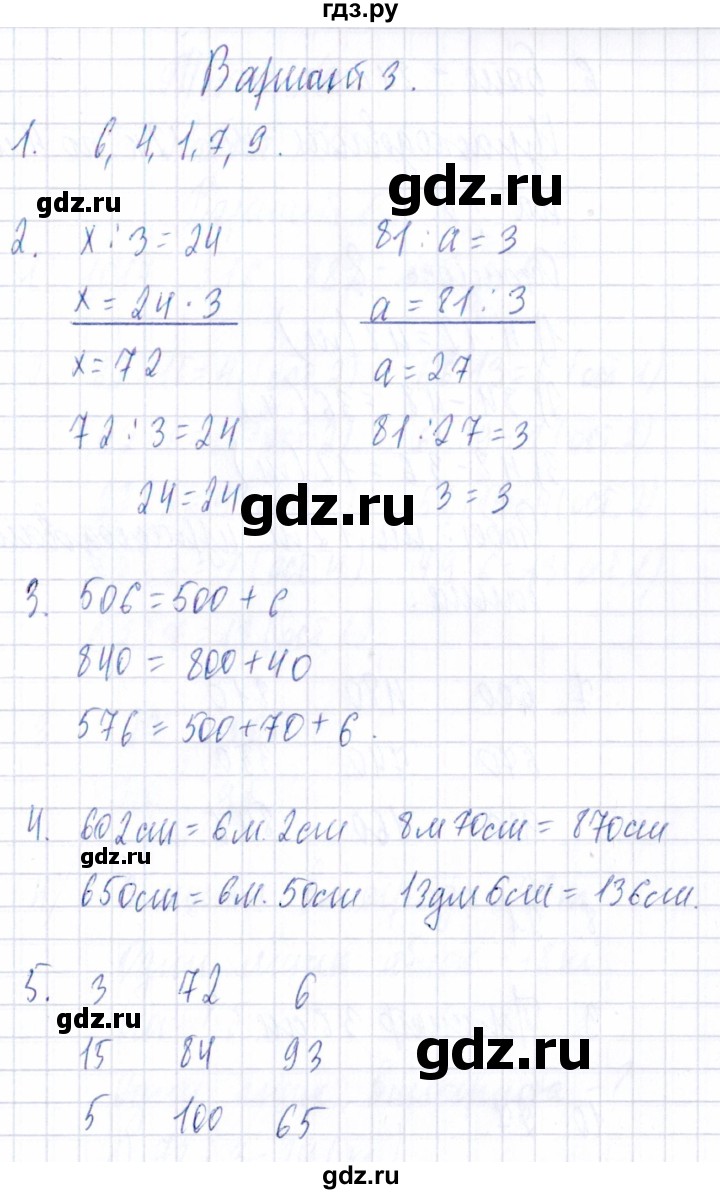 гдз.ру
Вариант 3.
1. 6, 4, 1, 7, 9.
gdz.ru
gdz.ru
2. x : 3 = 24 81 : a = 3
x = 24 · 3 a = 81 : 3
x = 72 a = 27
72 : 3 = 24 81 : 27 = 3
24 = 24 3 = 3
gdz.ru
3. 506 = 500 + 6
840 = 800 + 40
576 = 500 + 70 + 6.
4. 602 см = 6 м. 2 см 8 м 70 см = 870 см
gdz.ru
650 см = 6 м. 50 см 13 дм 6 см = 136 см.
5. 3 72 6
gdz.ru
15 84 93
gdz.ru
5 100 65
gdz.ru